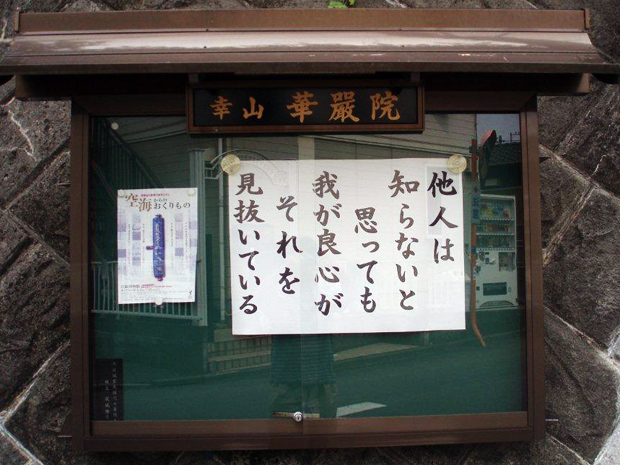 幸山 華嚴院
他人は
知らないと
思っても
我が良心が
それを
見抜いている
空海からの
おくりもの